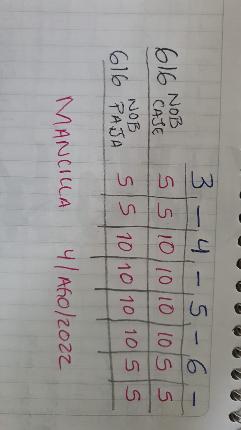 3 - 4 - 5 - 6 -
616 NOB CAFE 5 5 10 10 10 10 5 5
616 NOB PAJA 5 5 10 10 10 10 5 5
MANCILLA 4/AGO/2022